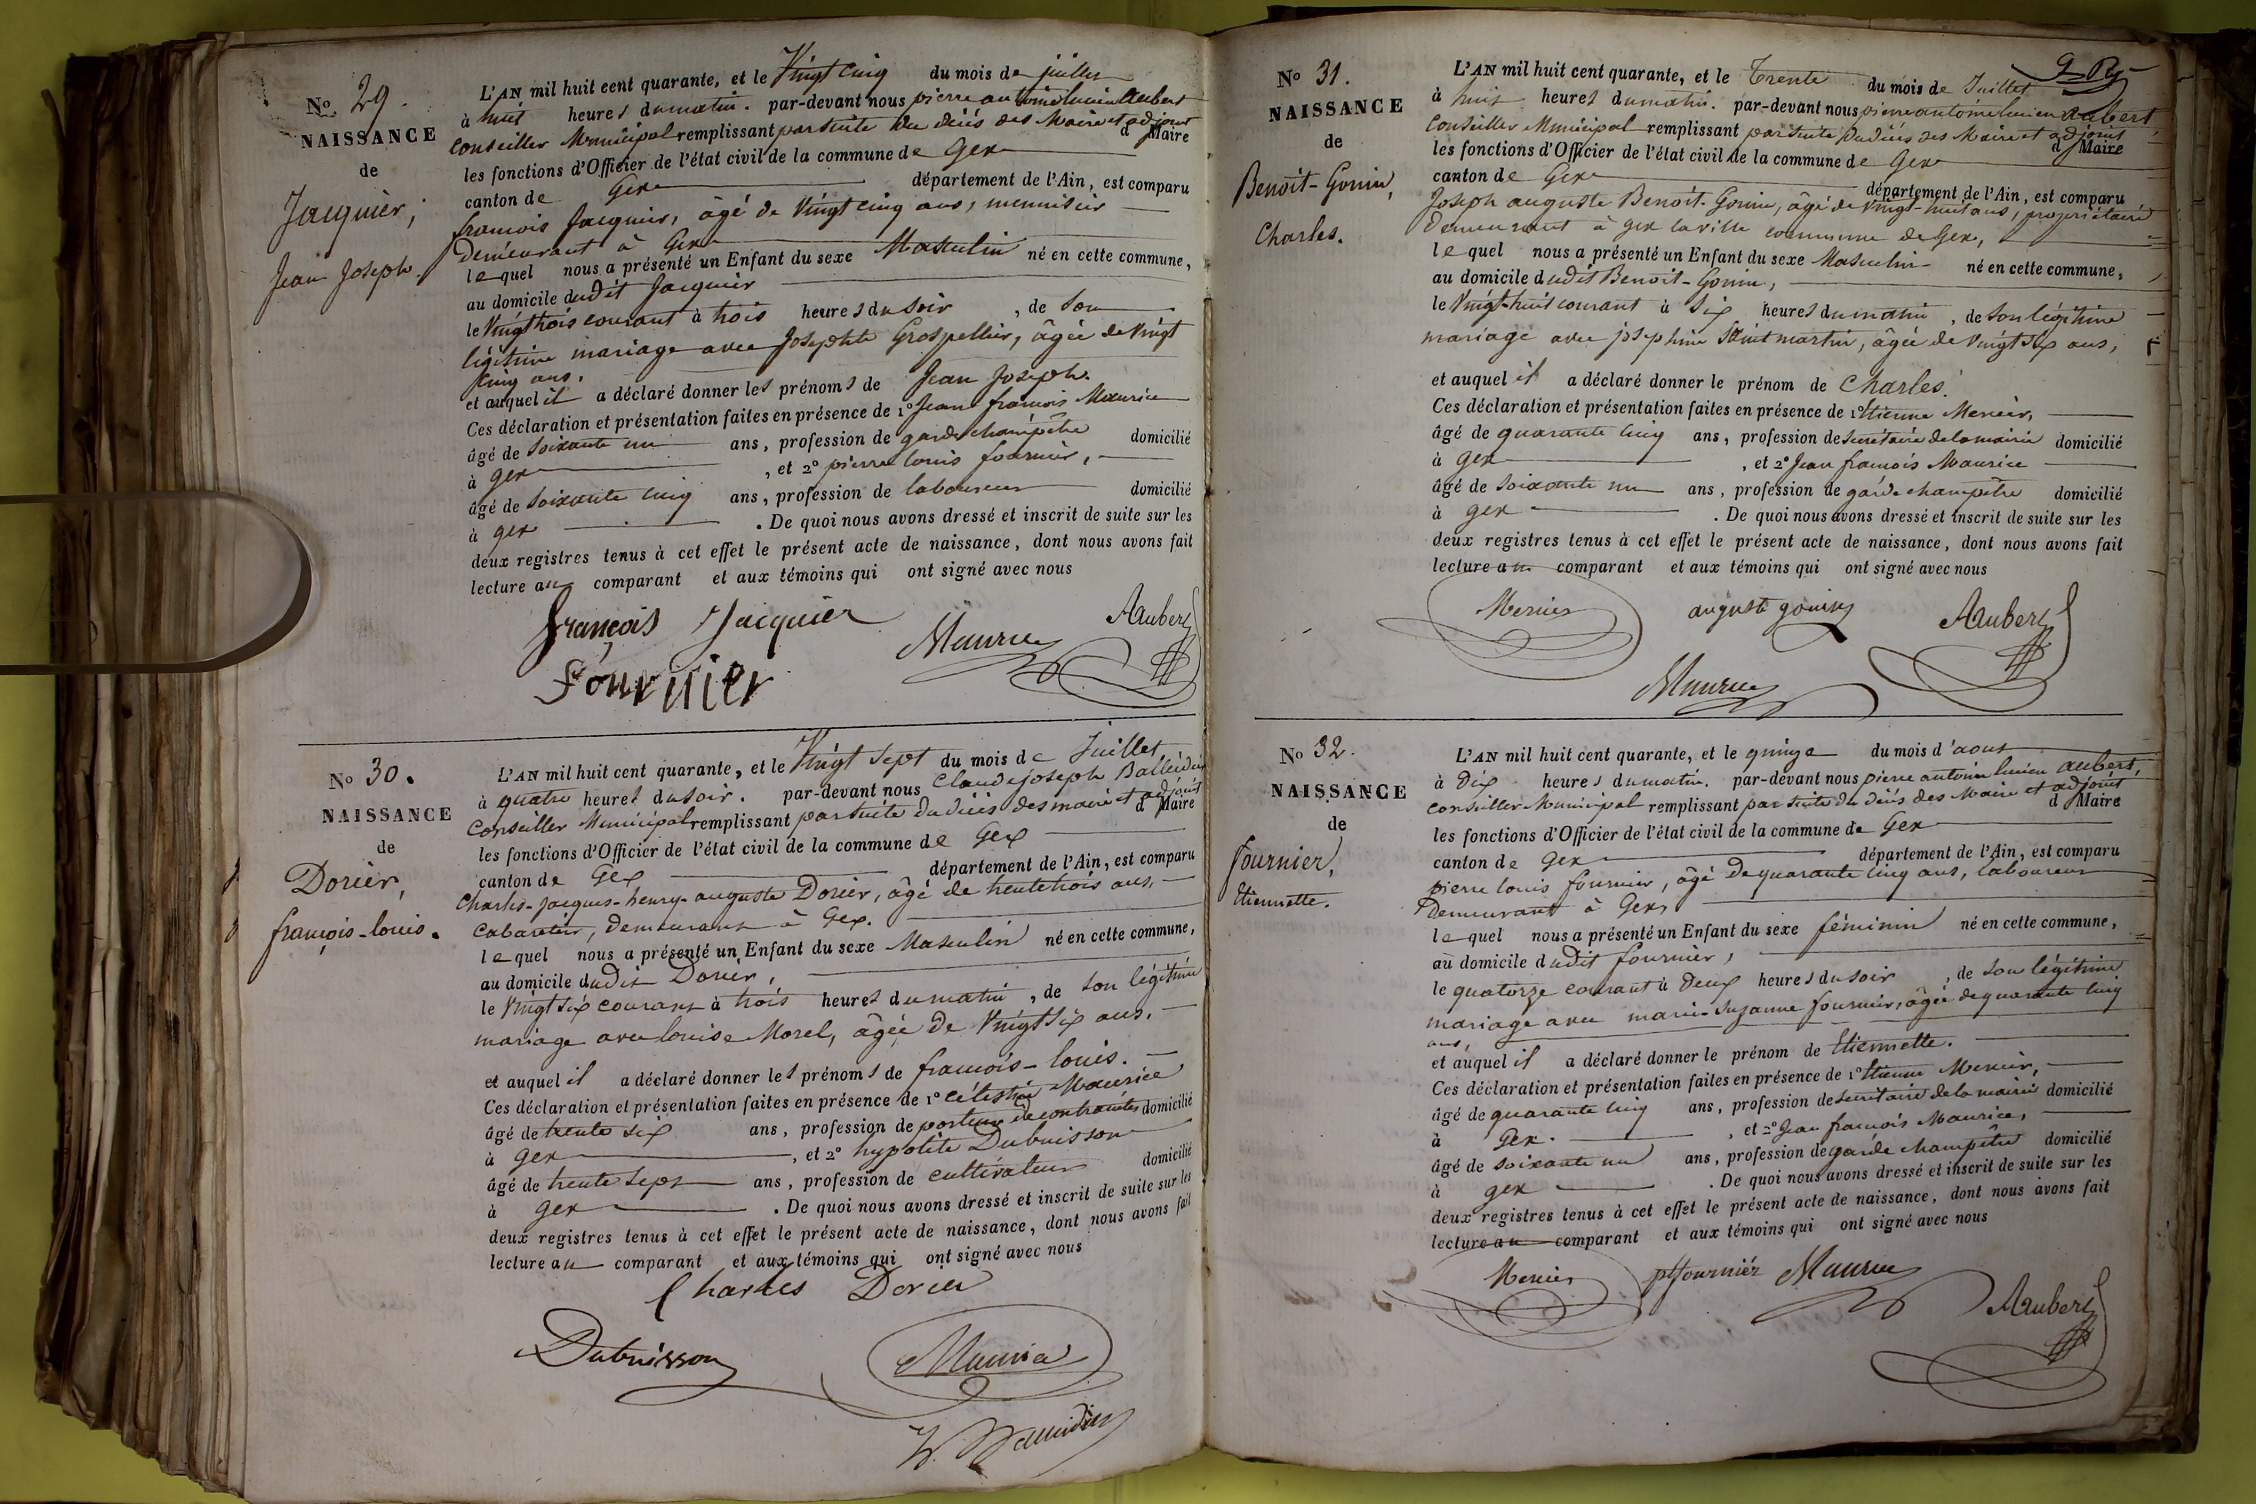 No 29.
NAISSANCE
de
Jacquier,
Jean Joseph.
L'AN mil huit cent quarante, et le Vingt cinq du mois de juillet
à huit heures du matin. par-devant nous pierre antoine lucien Aubert
Conseiller Municipal remplissant par suite du décés des Maire et adjoint
d Maire
les fonctions d'Officier de l'état civil de la commune de Gex
canton de Gex département de l'Ain, est comparu
francois Jacquier, âgé de Vingt cinq ans, menuisier
Demeurant à Gex
lequel nous a présenté un Enfant du sexe Masculin né en cette commune,
au domicile dudit Jacquier
le Vingt trois courant à trois heures du soir, de son
légitime mariage avec Josephte Grospellier, âgée de Vingt
Cinq ans.
et auquel il a déclaré donner les prénoms de Jean Joseph.
Ces déclaration et présentation faites en présence de 1° Jean francois Maurice
âgé de soixante un ans, profession de garde champêtre domicilié
à gex, et 2° pierre louis fournier,
âgé de soixante cinq ans, profession de laboureur domicilié
à gex. De quoi nous avons dressé et inscrit de suite sur les
deux registres tenus à cet effet le présent acte de naissance, dont nous avons fait
lecture au comparant et aux témoins qui ont signé avec nous
françois Jacquier
Maurice
AAubert
Fournier
No 30.
NAISSANCE
de
Dorier,
françois-louis.
L'AN mil huit cent quarante, et le Vingt sept du mois de Juillet
à quatre heures du soir. par-devant nous Claude joseph
Conseiller Municipal remplissant par suite du décés des maire et adjoint
d Maire
les fonctions d'Officier de l'état civil de la commune de Gex
canton de Gex département de l'Ain, est comparu
Charles-jacques-henry-auguste Dorier, âgé de trente trois ans,
Cabaretier, demeurant à Gex.
lequel nous a présenté un Enfant du sexe Masculin né en cette commune,
au domicile dudit Dorier,
le Vingt six courant à trois heures du matin, de son légitime
mariage avec louise Morel, âgée de Vingt six ans.
et auquel il a déclaré donner les prénoms de francois-louis.
Ces déclaration et présentation faites en présence de 1° célestin Maurice
âgé de trente six ans, profession de porteur de contraintes domicilié
à gex, et 2° hypolite Dubuisson
âgé de trente sept ans, profession de cultivateur domicilié
à gex. De quoi nous avons dressé et inscrit de suite sur les
deux registres tenus à cet effet le présent acte de naissance, dont nous avons fait
lecture au comparant et aux témoins qui ont signé avec nous
Charles Dorier
Dubuisson
Maurice
No 31.
NAISSANCE
de
Benoît-Gonin,
Charles.
L'AN mil huit cent quarante, et le Trente du mois de Juillet
à huit heures du matin. par-devant nous pierre antoine lucien Aubert
Conseiller Municipal remplissant par suite du décés des Maire et adjoint
d Maire
les fonctions d'Officier de l'état civil de la commune de Gex
canton de Gex département de l'Ain, est comparu
Joseph auguste Benoit-Gonin, âgé de Vingt-huit ans, propriétaire
demeurant à gex la ville commune de Gex,
lequel nous a présenté un Enfant du sexe Masculin né en cette commune,
au domicile dudit Benoit-Gonin,
le Vingt-huit courant à six heures du matin, de son légitime
mariage avec josephine Saint martin, âgée de Vingt six ans,
et auquel il a déclaré donner le prénom de Charles.
Ces déclaration et présentation faites en présence de 1° Etienne Mercier,
âgé de quarante cinq ans, profession de secrétaire de la mairie domicilié
à gex, et 2° Jean francois Maurice
âgé de soixante un ans, profession de garde champêtre domicilié
à gex. De quoi nous avons dressé et inscrit de suite sur les
deux registres tenus à cet effet le présent acte de naissance, dont nous avons fait
lecture au comparant et aux témoins qui ont signé avec nous
Mercier
auguste gonin
AAubert
Maurice
No 32.
NAISSANCE
de
fournier,
Etiennette.
L'AN mil huit cent quarante, et le quinze du mois d'aout
à Dix heures du matin. par-devant nous pierre antoine lucien aubert,
Conseiller Municipal remplissant par suite du décés des Maire et adjoint
d Maire
les fonctions d'Officier de l'état civil de la commune de Gex
canton de Gex département de l'Ain, est comparu
pierre louis fournier, âgé de quarante cinq ans, laboureur
Demeurant à Gex,
lequel nous a présenté un Enfant du sexe féminin né en cette commune,
au domicile dudit fournier,
le quatorze courant à Deux heures du soir, de son légitime
mariage avec marie-suzanne fournier, âgée de quarante cinq
ans,
et auquel il a déclaré donner le prénom de Etiennette.
Ces déclaration et présentation faites en présence de 1° Etienne Mercier,
âgé de quarante cinq ans, profession de secrétaire de la mairie domicilié
à Gex., et 2° Jean francois Maurice,
âgé de soixante un ans, profession de garde champêtre domicilié
à gex. De quoi nous avons dressé et inscrit de suite sur les
deux registres tenus à cet effet le présent acte de naissance, dont nous avons fait
lecture au comparant et aux témoins qui ont signé avec nous
Mercier
plfournier
Maurice
AAubert